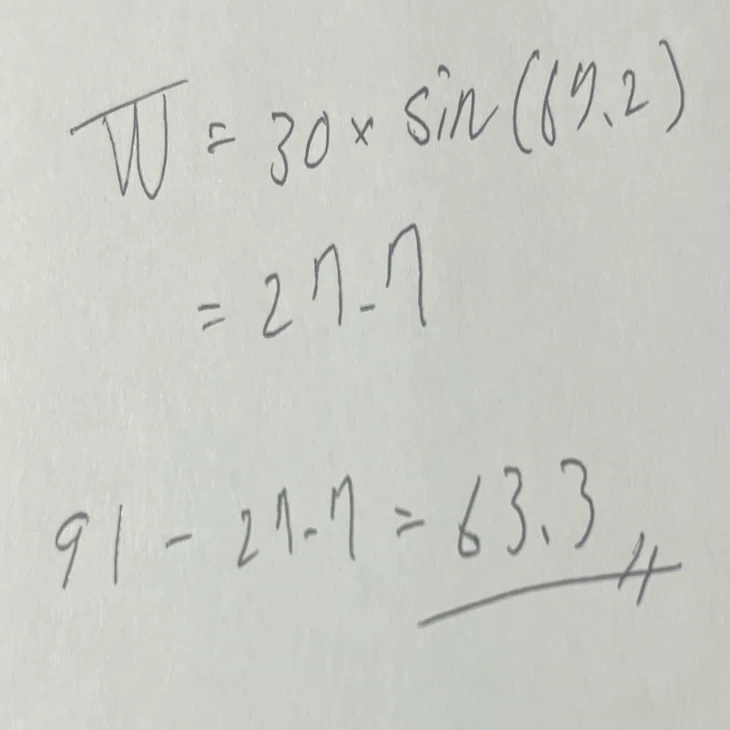 W̅ = 30 × sin(67.2)
= 27.7
91 - 27.7 = 63.3